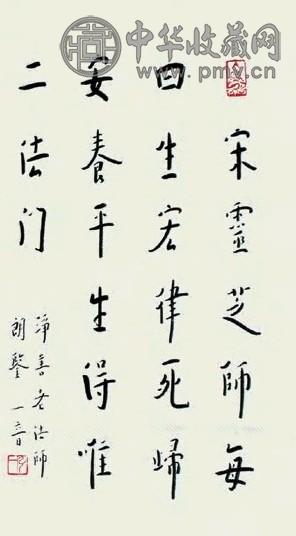 中华收藏网
www.pmv.cn
宋靈芝師每
曰生宏律死歸
安養平生得唯
二法门
淨善老法師
朗鑒 一音